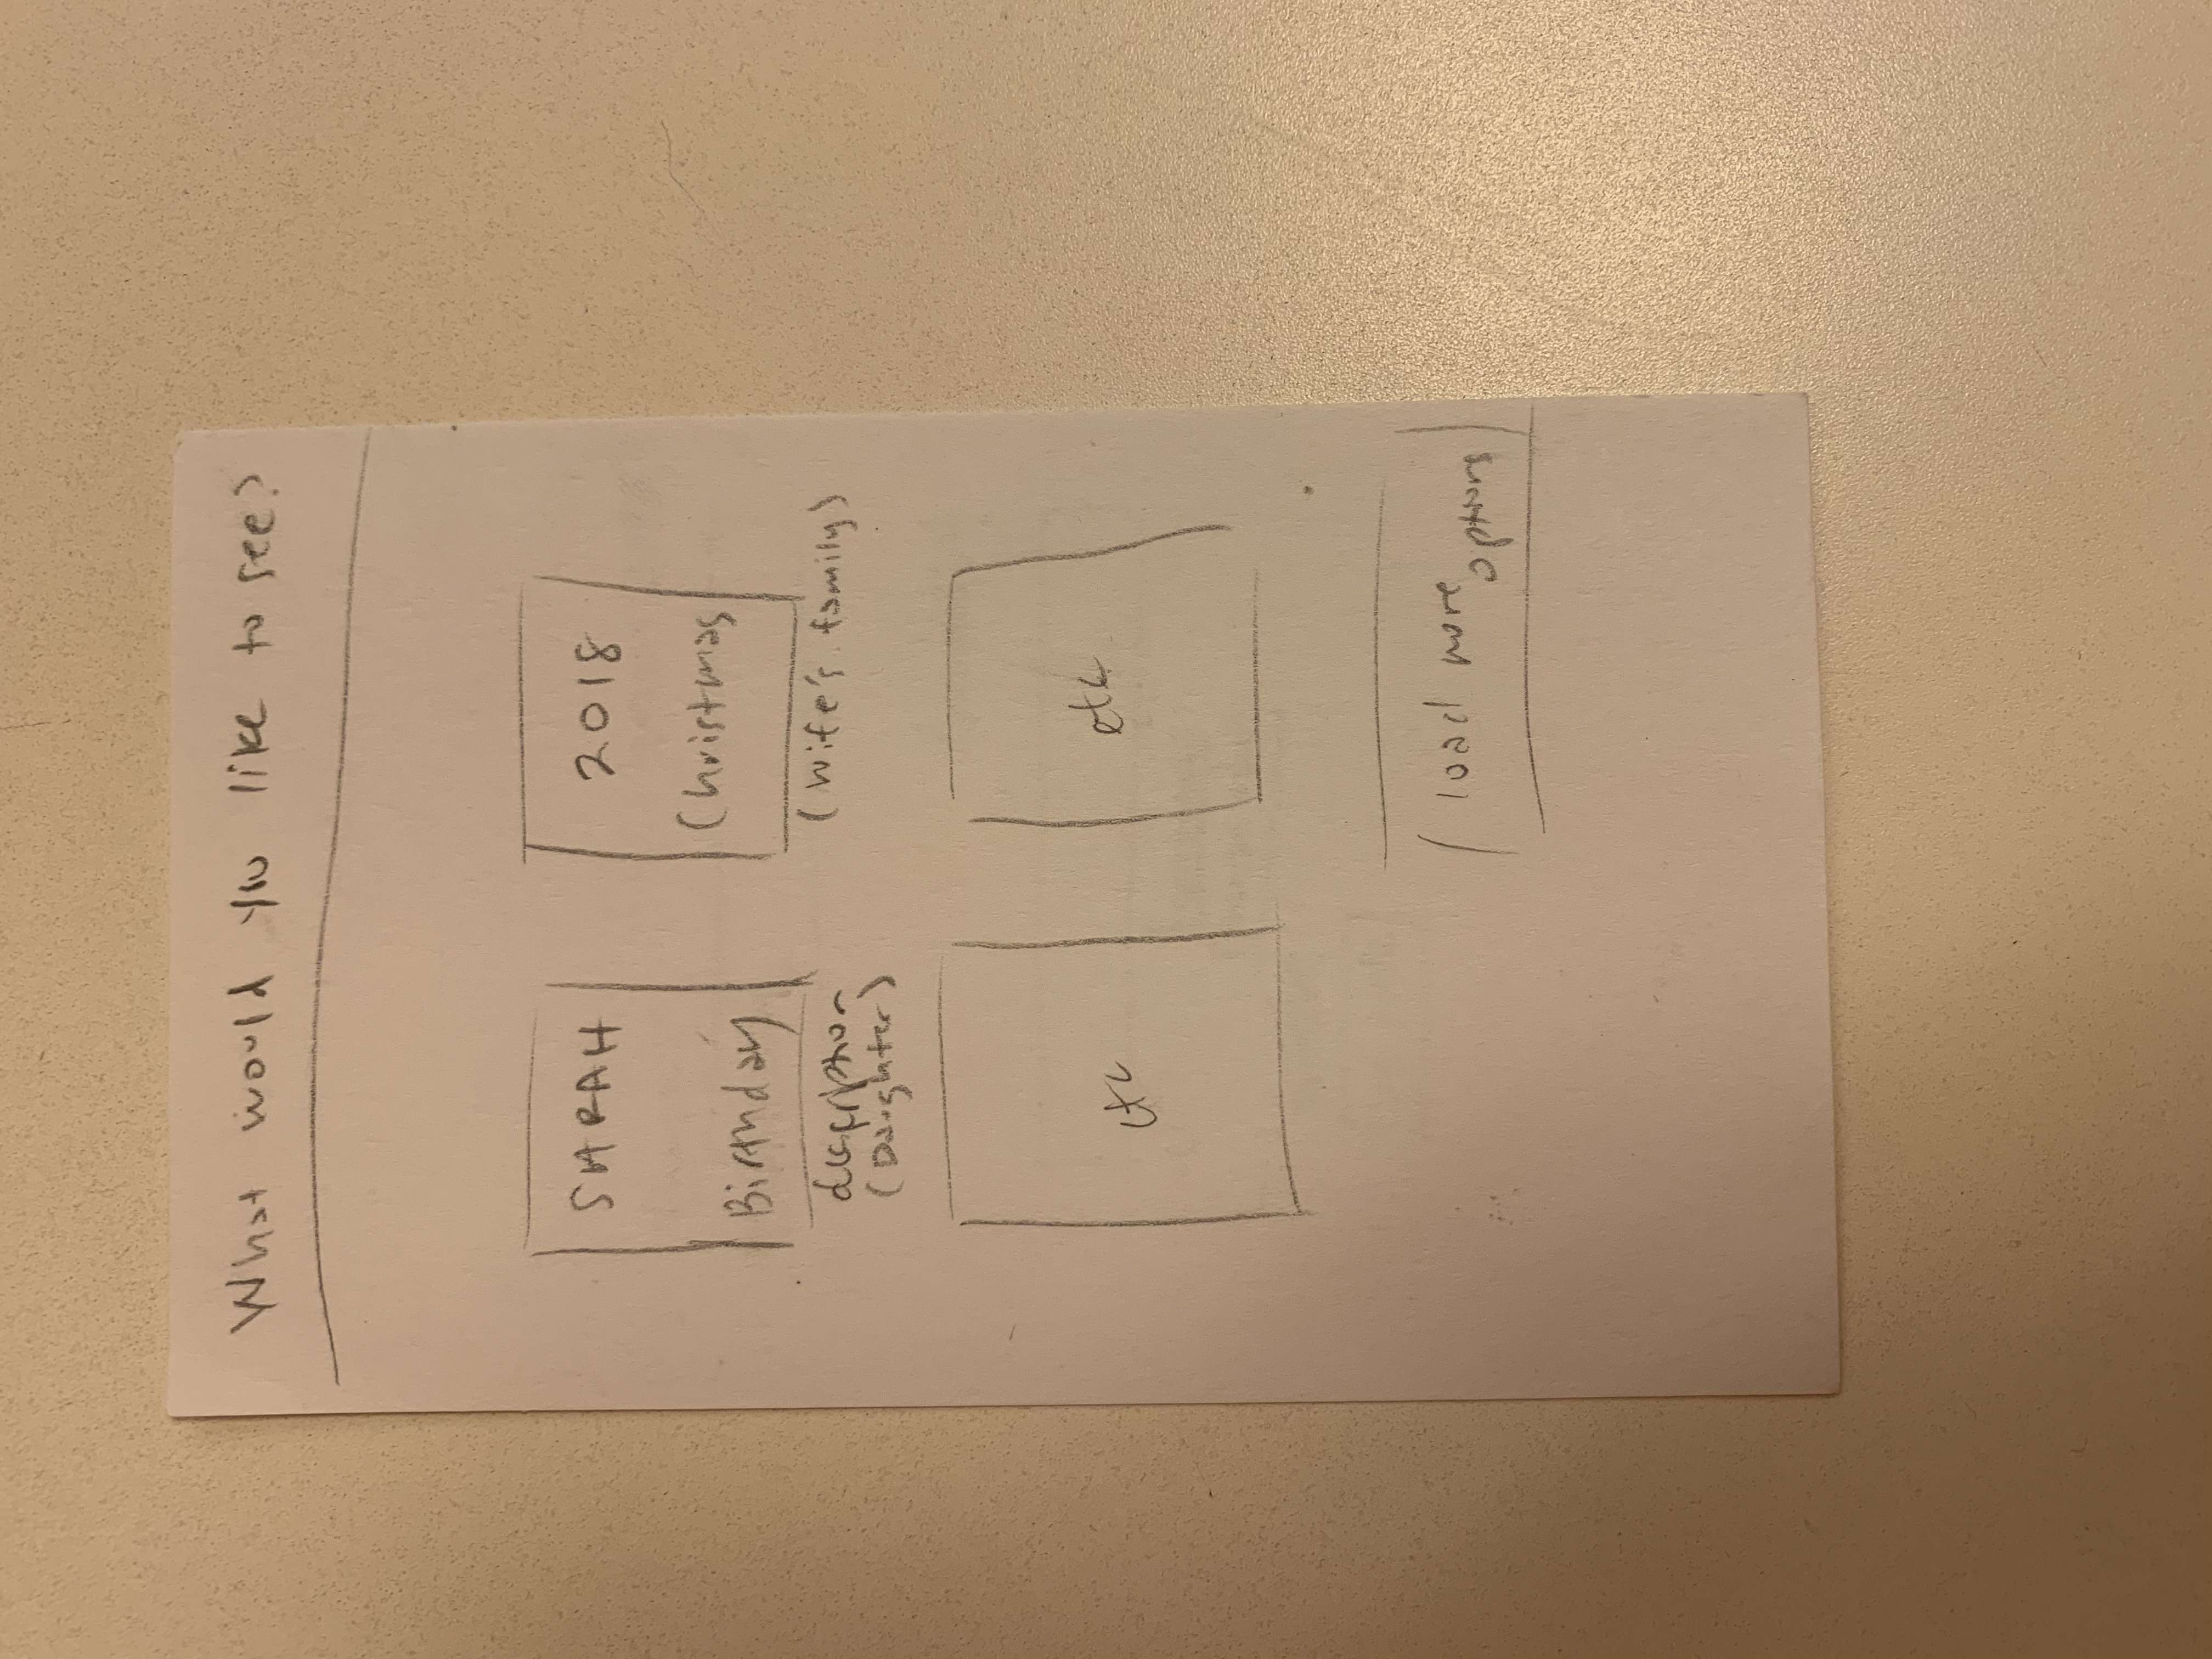 What would you like to see?
SARAH
Birthday
description
(Daughter)
2018
Christmas
(Wife's family)
etc
etc
load more
options